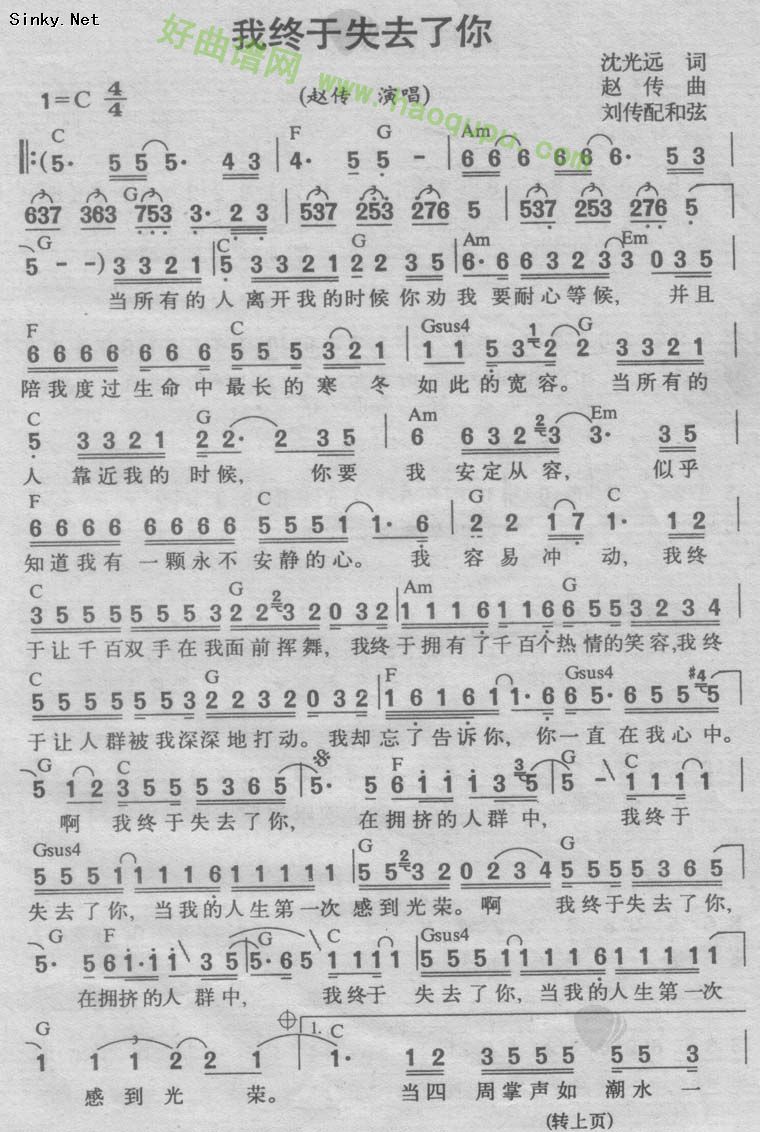 Sinky.Net
我终于失去了你
好曲谱网
www.haoqupu.com
沈光远 词
1=C 4/4
(赵传 演唱)
赵 传 曲
刘传配和弦
C F G Am
5· 5 5 5· 4 3 4· 5 5· - 6 6 6 6 6 6· 5 3
G
637 363 753 3· 2 3 537 253 276 5 537 253 276 5
G C G Am Em
5 - -) 3 3 2 1 5 3 3 2 1 2 2 3 5 6· 6 6 3 2 3 3 0 3 5
当所有的人 离开我的时候你劝我 要耐心等候， 并且
F C Gsus4 G
6 6 6 6 6 6 6 5 5 5 3 2 1 1 1 5 3 2 2 3 3 2 1
陪我度过生命中最长的寒 冬 如此的宽容。 当所有的
C G Am Em
5 3 3 2 1 2 2· 2 3 5 6 6 3 2 3 3· 3 5
人 靠近我的 时候， 你要 我 安定从容， 似乎
F C G C
6 6 6 6 6 6 6 6 5 5 5 1 1· 6 2 2 1 7 1· 1 2
知道我有 一颗永不 安静的心。 我 容易 冲 动，我终
C G Am G
3 5 5 5 5 5 5 3 2 2 3 2 0 3 2 1 1 1 6 1 1 6 6 5 5 3 2 3 4
于让千百双手在我面前挥舞， 我终于拥有了千百个热情的笑容，我终
C G F Gsus4
5 5 5 5 5 5 5 3 2 2 3 2 0 3 2 1 6 1 6 1 1· 6 6 5· 6 5 5 #4 5
于让人群被我深深地打动。我却忘了告诉你，你一直在我心中。
G C F G C
5 1 2 3 5 5 5 3 6 5 5· 5 6 1 1 1 3 5 5 - 1 1 1 1
啊 我终于失去了你， 在拥挤的人群中， 我终于
Gsus4 G G
5 5 5 1 1 1 1 6 1 1 1 1 1 5 5 3 2 0 2 3 4 5 5 5 5 3 6 5
失去了你，当我的人生第一次 感到光荣。啊 我终于失去了你，
G F G C Gsus4
5· 5 6 1· 1 1 3 5 5· 6 5 1 1 1 1 5 5 5 1 1 1 1 6 1 1 1 1 1
在拥挤的人 群中， 我终于 失去了你，当我的人生第一次
G 1. C
1 1 1 2 2 1 1· 1 2 3 5 5 5 5 5 3
感到光 荣。 当四 周掌声如 潮水 一
(转上页)